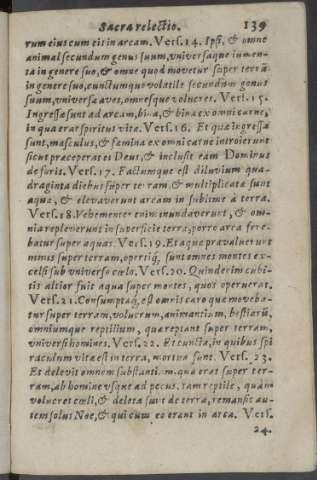 Sacra relectio. 139
rum eius cum eis in arcam. Vers. 14. Ipsi, & omne
animal secundum genus suum, universaque iumen-
ta in genere suo, & omne quod movetur super terrā
in genere suo, cunctumque volatile secundum genus
suum, universæ aves, omnesque volucres. Vers. 15.
Ingressæ sunt ad arcam, bina, & bina ex omni carne,
in qua erat spiritus vitæ. Vers. 16. Et quæ ingressa
sunt, masculus, & fæmina ex omni carne introierunt
sicut præceperat eis Deus, & inclusit eam Dominus
de foris. Vers. 17. Factumque est diluvium qua-
draginta diebus super terram, & multiplicatæ sunt
aquæ, & elevaverunt arcam in sublime à terra.
Vers. 18. Vehementer enim inundaverunt, & om-
nia repleverunt in superficie terræ, porro arca fere-
batur super aquas. Vers. 19. Et aquæ prævaluerunt
nimis super terram, opertiq́; sunt omnes montes ex-
celsi sub universo cælo. Vers. 20. Quindecim cubi-
tis altior fuit aqua super montes, quos operuerat.
Vers. 21. Consumptaq́; est omnis caro quæ moveba-
tur super terram, volucrum, animantium, bestiarū,
omniumque reptilium, quæ reptant super terram,
universi homines. Vers. 22. Et cuncta, in quibus spi
raculum vitæ est in terra, mortua sunt. Vers. 23.
Et delevit omnem substantiam, quæ erat super ter-
ram, ab homine usque ad pecus, tam reptile, quàm
volucres cœli, & deleta sunt de terra, remansit au-
tem solus Noe, & qui cum eo erant in arca. Vers.
24.